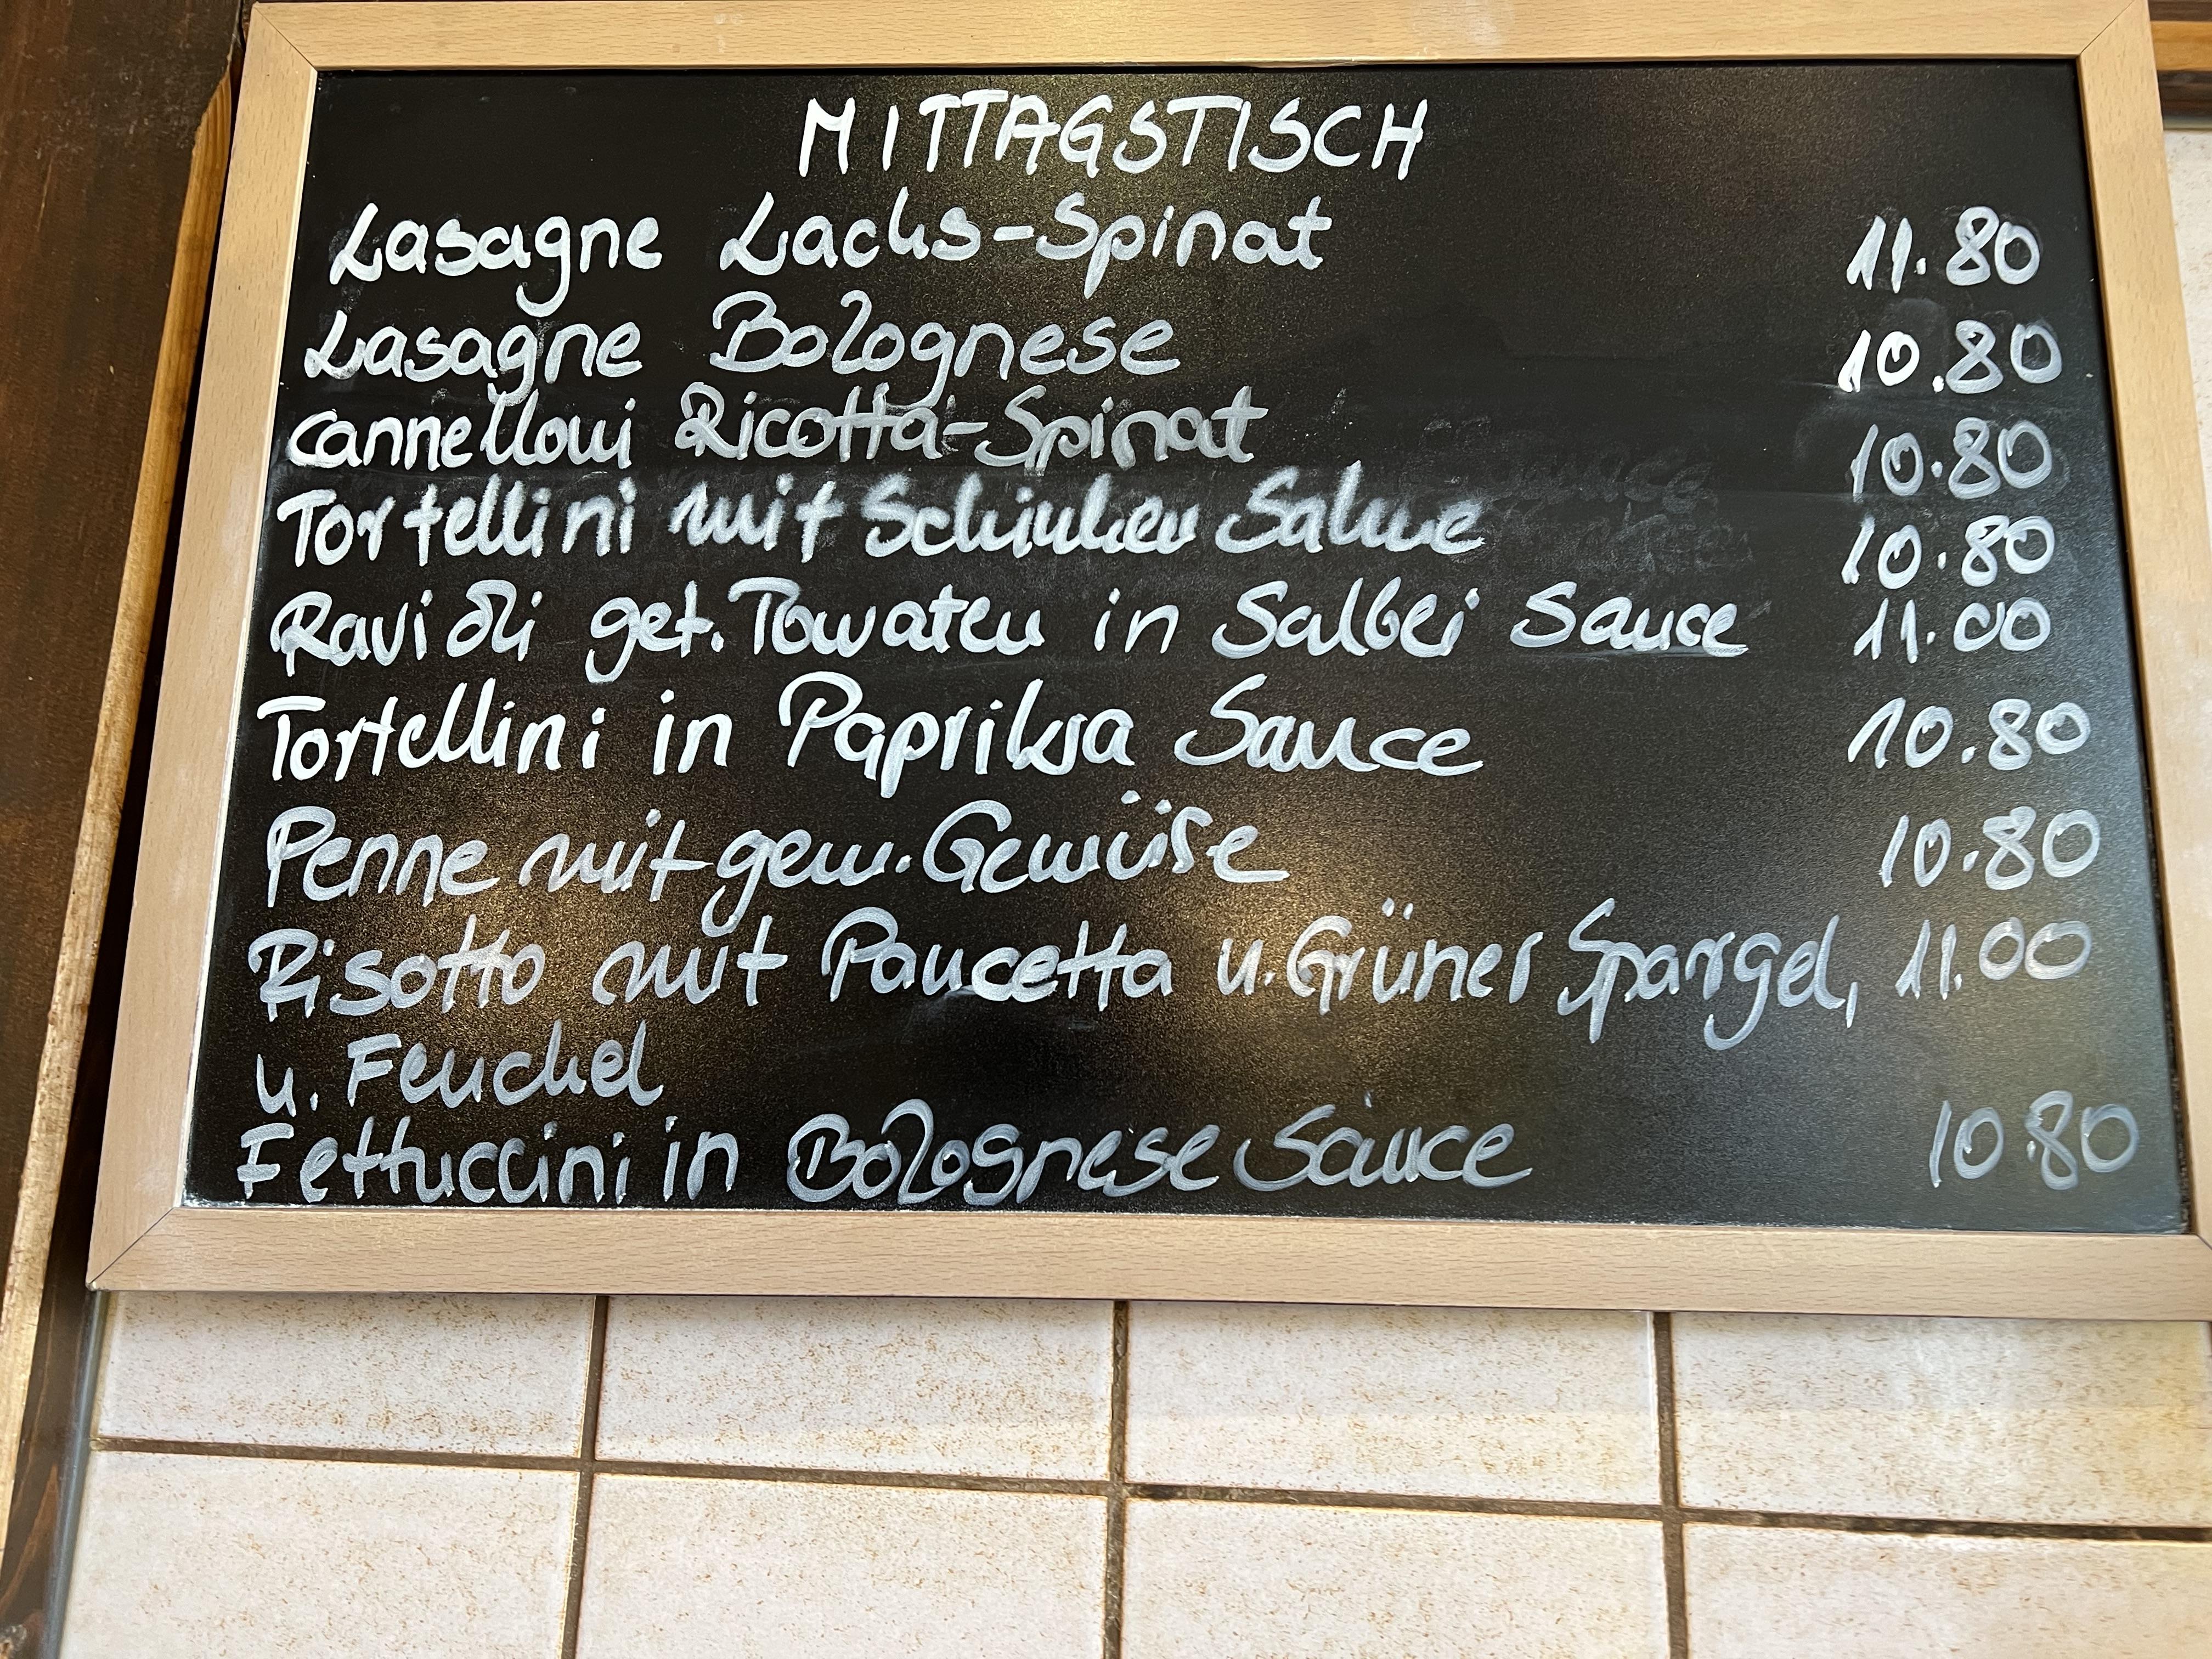 MITTAGSTISCH
Lasagne Lachs-Spinat 11.80
Lasagne Bolognese 10.80
Cannelloni Ricotta-Spinat 10.80
Tortellini mit Schinken Sahne 10.80
Ravioli get. Tomaten in Salbei Sauce 11.00
Tortellini in Paprika Sauce 10.80
Penne mit gem. Gemüse 10.80
Risotto mit Pancetta u. Grüner Spargel, 11.00
u. Fenchel
Fettuccini in Bolognese Sauce 10.80